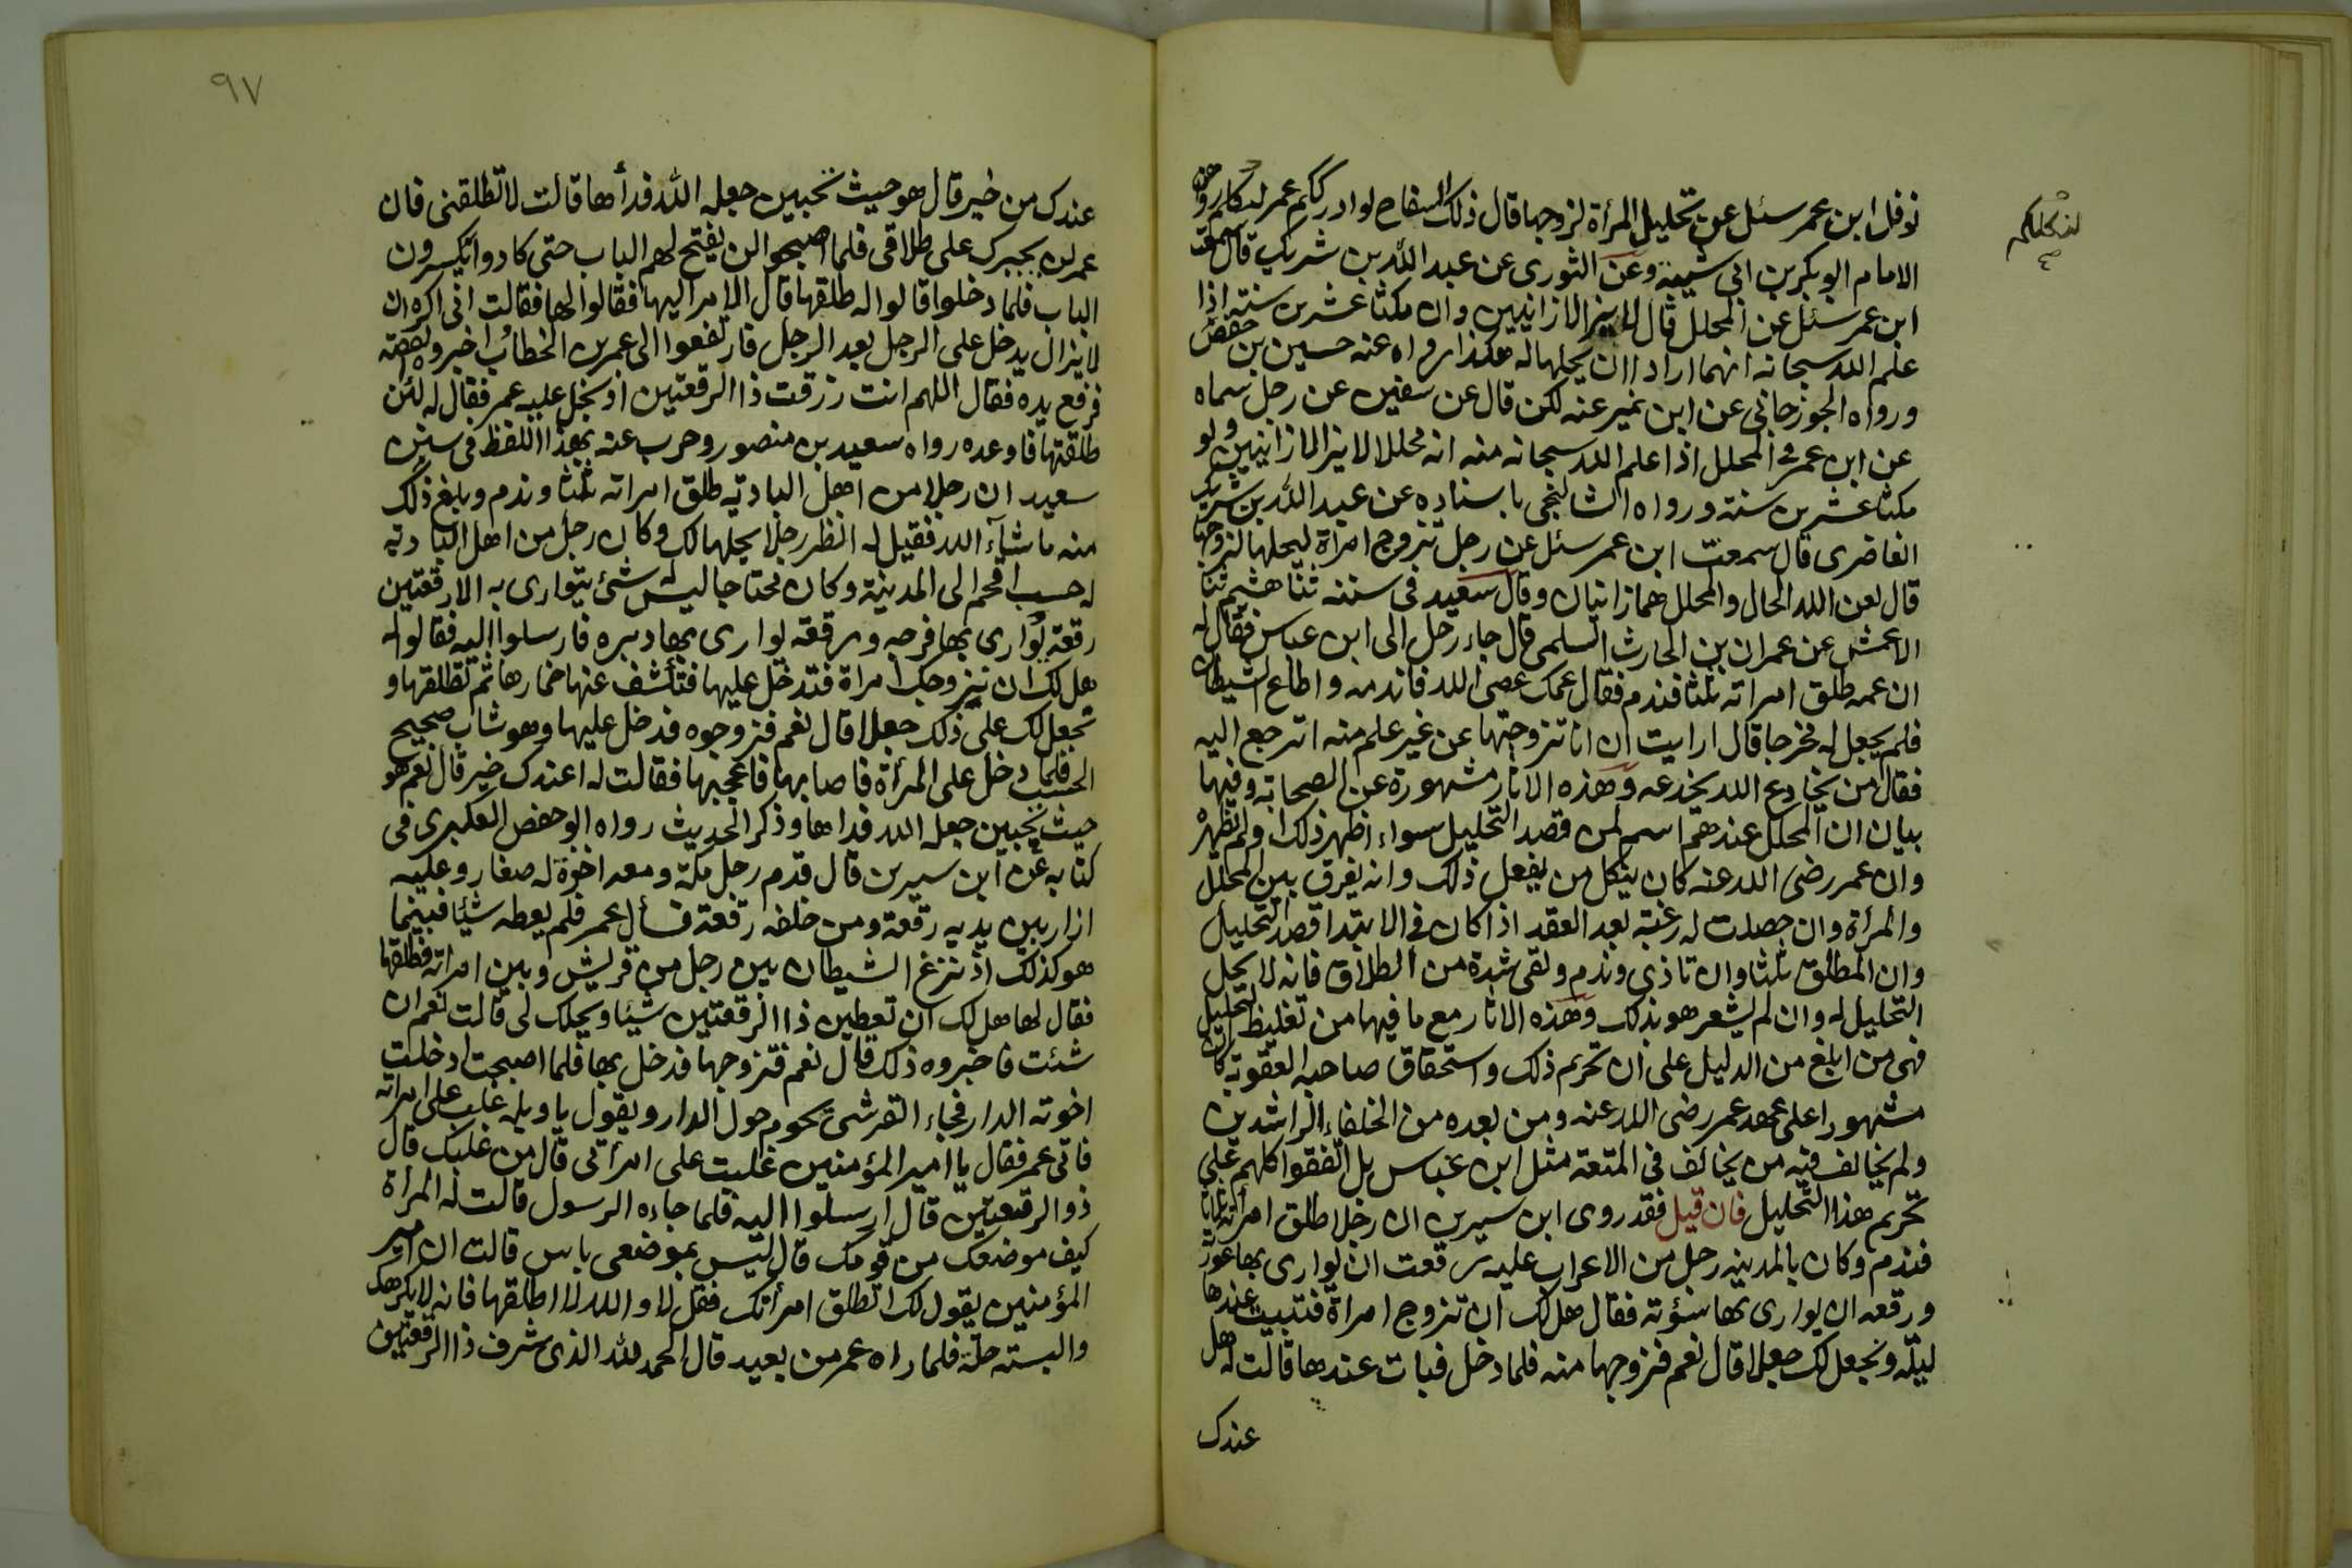 نوفل ابن عمر سئل عن تحليل المرأة لزوجها قال ذلك السفاح لوادرككم عمر لنكلكم رواهن
لنكلكم
الامام ابو بكر بن ابى شيبة وعن الثورى عن عبد الله بن شريك قال سمعت
ابن عمر سئل عن المحلل قال لا يزالا زانيين وان مكثا عشرين سنة اذا
علم الله سبحانه انهما ارادا ان يحلها له هكذا رواه عنه حسين بن حفص
ورواه الجوزجانى عن ابن نمير عنه لكن قال عن سفين عن رجل سماه
عن ابن عمر فى المحلل اذا علم الله سبحانه منه انه محلل لا يزالا زانيين ولو
مكثا عشرين سنة ورواه الشالنجى باسناده عن عبد الله بن شريك
الغاضرى قال سمعت ابن عمر سئل عن رجل تزوج امرأة ليحلها لزوجها
قال لعن الله الحال والمحلل هما زانيان وقال سعيد فى سننه ثنا هشيم ثنا
الاعمش عن عمران بن الحارث السلمى قال جاء رجل الى ابن عباس فقال له
ان عمه طلق امراته ثلثا فندم فقال عمك عصى الله فاندمه واطاع الشيطان
فلم يجعل له مخرجا قال ارايت ان انا تزوجتها عن غير علم منه اترجع اليه
فقال من يخادع الله يخدعه وهذه الاثار مشهورة عن الصحابة وفيها
بيان ان المحلل عندهم اسم لمن قصد التحليل سواء اظهر ذلك او لم يظهره
وان عمر رضى الله عنه كان ينكل من يفعل ذلك وانه يفرق بين المحلل
والمرأة وان حصلت له رغبة بعد العقد اذا كان فى الابتدا قصد التحليل
وان المطلق ثلثا وان تاذى وندم ولقى شدة من الطلاق فانه لا يحل
التحليل له وان لم يشعر هو بذلك وهذه الاثار مع ما فيها من تغليظ التحليل
فهى من ابلغ من الدليل على ان تحريم ذلك واستحقاق صاحبه العقوبة كان
مشهورا على عهد عمر رضى الله عنه ومن بعده من الخلفاء الراشدين
ولم يخالف فيه من يخالف فى المتعة مثل ابن عباس بل اتفقوا كلهم على
تحريم هذا التحليل فان قيل فقد روى ابن سيرين ان رجلا طلق امراته ثلاثا
فندم وكان بالمدينه رجل من الاعراب عليه رقعتان يوارى بها عورته
ورقعه ان يوارى بها سؤته فقال هل لك ان تزوج امراة فتبيت عندها
ليلة ونجعل لك جعلا قال نعم فزوجها منه فلما دخل فبات عندها قالت له هل
عندك
٩٧
عندك من خير قال هو حيث تحبين جعله الله فدأها قالت لا تطلقنى فان
عمر لن يجبرك على طلاقى فلما اصبحوا لن يفتح لهم الباب حتى كادوا يكسرون
الباب فلما دخلوا قالوا له طلقها قال الامر اليها فقالوا لها فقالت انى اكره ان
لا يزال يدخل على الرجل بعد الرجل فارتفعوا الى عمر بن الخطاب اخبروه القصة
فرفع يده فقال اللهم انت رزقت ذا الرقعتين اذ بخل عليه عمر فقال له لئن
طلقتها فاوعده رواه سعيد بن منصور وحرب عنه بهذا اللفظ فى سنن
سعيد ان رجلا من اهل البادية طلق امراته ثلثا وندم وبلغ ذلك
منه ما شآء الله فقيل له انظر رجلا يحلها لك وكان رجل من اهل البادية
له حسب اقحم الى المدينة وكان محتاجا ليس له شئ يتوارى به الا رقعتين
رقعة يوارى بها فرجه ورقعة يوارى بها دبره فارسلوا اليه فقالوا له
هل لك ان نزوجك امراة فتدخل عليها فتكشف عنها خمارها ثم تطلقها و
نجعل لك على ذلك جعلا قال نعم فزوجوه فدخل عليها وهو شاب صحيح
الحسب فلما دخل على المرأة فاصابها فاعجبها فقالت له اعندك خير قال نعم هو
حيث تحبين جعله الله فداها وذكر الحديث رواه ابو حفص العكبرى فى
كتابه عن ابن سيرين قال قدم رجل مكة ومعه اخوة له صغار وعليه
ازار بين يديه رقعة ومن خلفه رقعة فسأل عمر فلم يعطه شيئا فبينما
هو كذلك اذ نزغ الشيطان بين رجل من قريش وبين امراته فطلقها
فقال لها هل لك ان تعطين ذا الرقعتين شيئا ويحلك لى قالت نعم ان
شئت فاخبروه ذلك قال نعم فتزوجها فدخل بها فلما اصبحت ادخلت
اخوته الدار فجاء القرشى يحوم حول الدار ويقول يا ويله غلب على امراته
فاتى عمر فقال يا امير المؤمنين غلبت على امرأتى قال من غلبك قال
ذو الرقعتين قال ارسلوا اليه فلما جاءه الرسول قالت له المرأة
كيف موضعك من قومك قال ليس بموضعى باس قالت ان امير
المؤمنين يقول لك اتطلق امرأتك فقل لا والله لا اطلقها فانه لا يكرهك
والبسته حلة فلما راه عمر من بعيد قال الحمد لله الذى شرف ذا الرقعتين